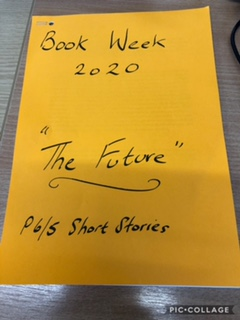 Book Week
2020
"The Future"
P6/5 Short Stories
PIC•COLLAGE